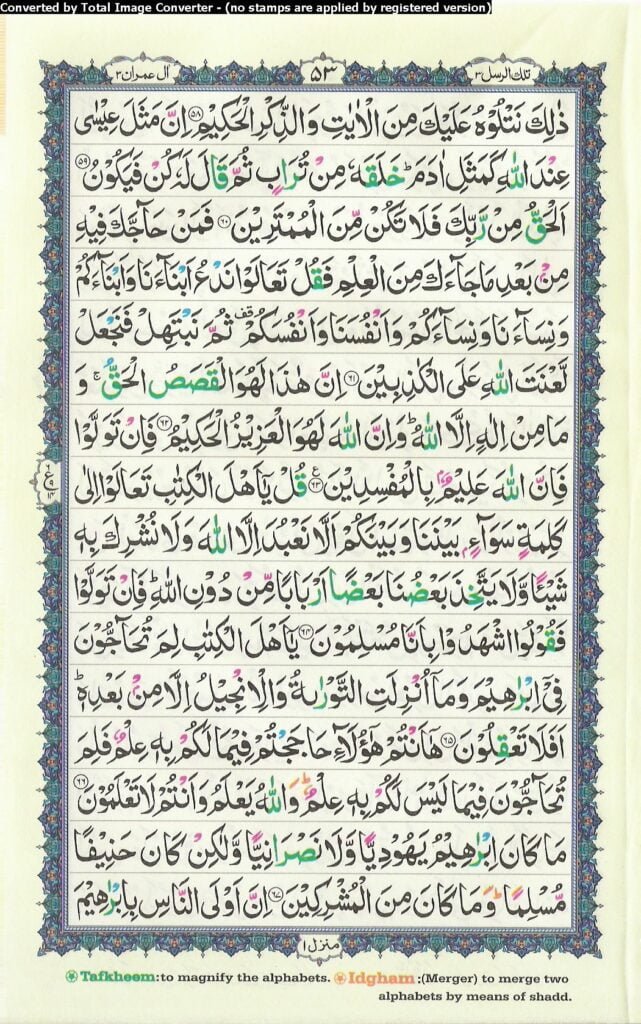 Converted by Total Image Converter - (no stamps are applied by registered version)
تلك الرسل ٣ ٥٣ اٰل عمران ٣
ذٰلِكَ نَتْلُوْهُ عَلَيْكَ مِنَ الْاٰيٰتِ وَالذِّكْرِ الْحَكِيْمِ ﴿٥٨﴾ اِنَّ مَثَلَ عِيْسٰى
عِنْدَ اللّٰهِ كَمَثَلِ اٰدَمَ ؕ خَلَقَهٗ مِنْ تُرَابٍ ثُمَّ قَالَ لَهٗ كُنْ فَيَكُوْنُ ﴿٥٩﴾
اَلْحَقُّ مِنْ رَّبِّكَ فَلَا تَكُنْ مِّنَ الْمُمْتَرِيْنَ ﴿٦٠﴾ فَمَنْ حَآجَّكَ فِيْهِ
مِنْۢ بَعْدِ مَا جَآءَكَ مِنَ الْعِلْمِ فَقُلْ تَعَالَوْا نَدْعُ اَبْنَآءَنَا وَاَبْنَآءَكُمْ
وَنِسَآءَنَا وَنِسَآءَكُمْ وَاَنْفُسَنَا وَاَنْفُسَكُمْ ۫ ثُمَّ نَبْتَهِلْ فَنَجْعَلْ
لَّعْنَتَ اللّٰهِ عَلَى الْكٰذِبِيْنَ ﴿٦١﴾ اِنَّ هٰذَا لَهُوَ الْقَصَصُ الْحَقُّ ۚ وَ
مَا مِنْ اِلٰهٍ اِلَّا اللّٰهُ ؕ وَاِنَّ اللّٰهَ لَهُوَ الْعَزِيْزُ الْحَكِيْمُ ﴿٦٢﴾ فَاِنْ تَوَلَّوْا
فَاِنَّ اللّٰهَ عَلِيْمٌۢ بِالْمُفْسِدِيْنَ ﴿٦٣﴾ قُلْ يٰۤاَهْلَ الْكِتٰبِ تَعَالَوْا اِلٰى
كَلِمَةٍ سَوَآءٍۢ بَيْنَنَا وَبَيْنَكُمْ اَلَّا نَعْبُدَ اِلَّا اللّٰهَ وَلَا نُشْرِكَ بِهٖ
شَيْـًٔا وَّلَا يَتَّخِذَ بَعْضُنَا بَعْضًا اَرْبَابًا مِّنْ دُوْنِ اللّٰهِ ؕ فَاِنْ تَوَلَّوْا
فَقُوْلُوا اشْهَدُوْا بِاَنَّا مُسْلِمُوْنَ ﴿٦٤﴾ يٰۤاَهْلَ الْكِتٰبِ لِمَ تُحَآجُّوْنَ
فِيْۤ اِبْرٰهِيْمَ وَمَاۤ اُنْزِلَتِ التَّوْرٰىةُ وَالْاِنْجِيْلُ اِلَّا مِنْۢ بَعْدِهٖ ؕ
اَفَلَا تَعْقِلُوْنَ ﴿٦٥﴾ هٰۤاَنْتُمْ هٰۤؤُلَآءِ حَاجَجْتُمْ فِيْمَا لَكُمْ بِهٖ عِلْمٌ فَلِمَ
تُحَآجُّوْنَ فِيْمَا لَيْسَ لَكُمْ بِهٖ عِلْمٌ ؕ وَاللّٰهُ يَعْلَمُ وَاَنْتُمْ لَا تَعْلَمُوْنَ ﴿٦٦﴾
مَا كَانَ اِبْرٰهِيْمُ يَهُوْدِيًّا وَّلَا نَصْرَانِيًّا وَّلٰكِنْ كَانَ حَنِيْفًا
مُّسْلِمًا ؕ وَمَا كَانَ مِنَ الْمُشْرِكِيْنَ ﴿٦٧﴾ اِنَّ اَوْلَى النَّاسِ بِاِبْرٰهِيْمَ
منزل ١
Tafkheem:to magnify the alphabets. Idgham :(Merger) to merge two
alphabets by means of shadd.